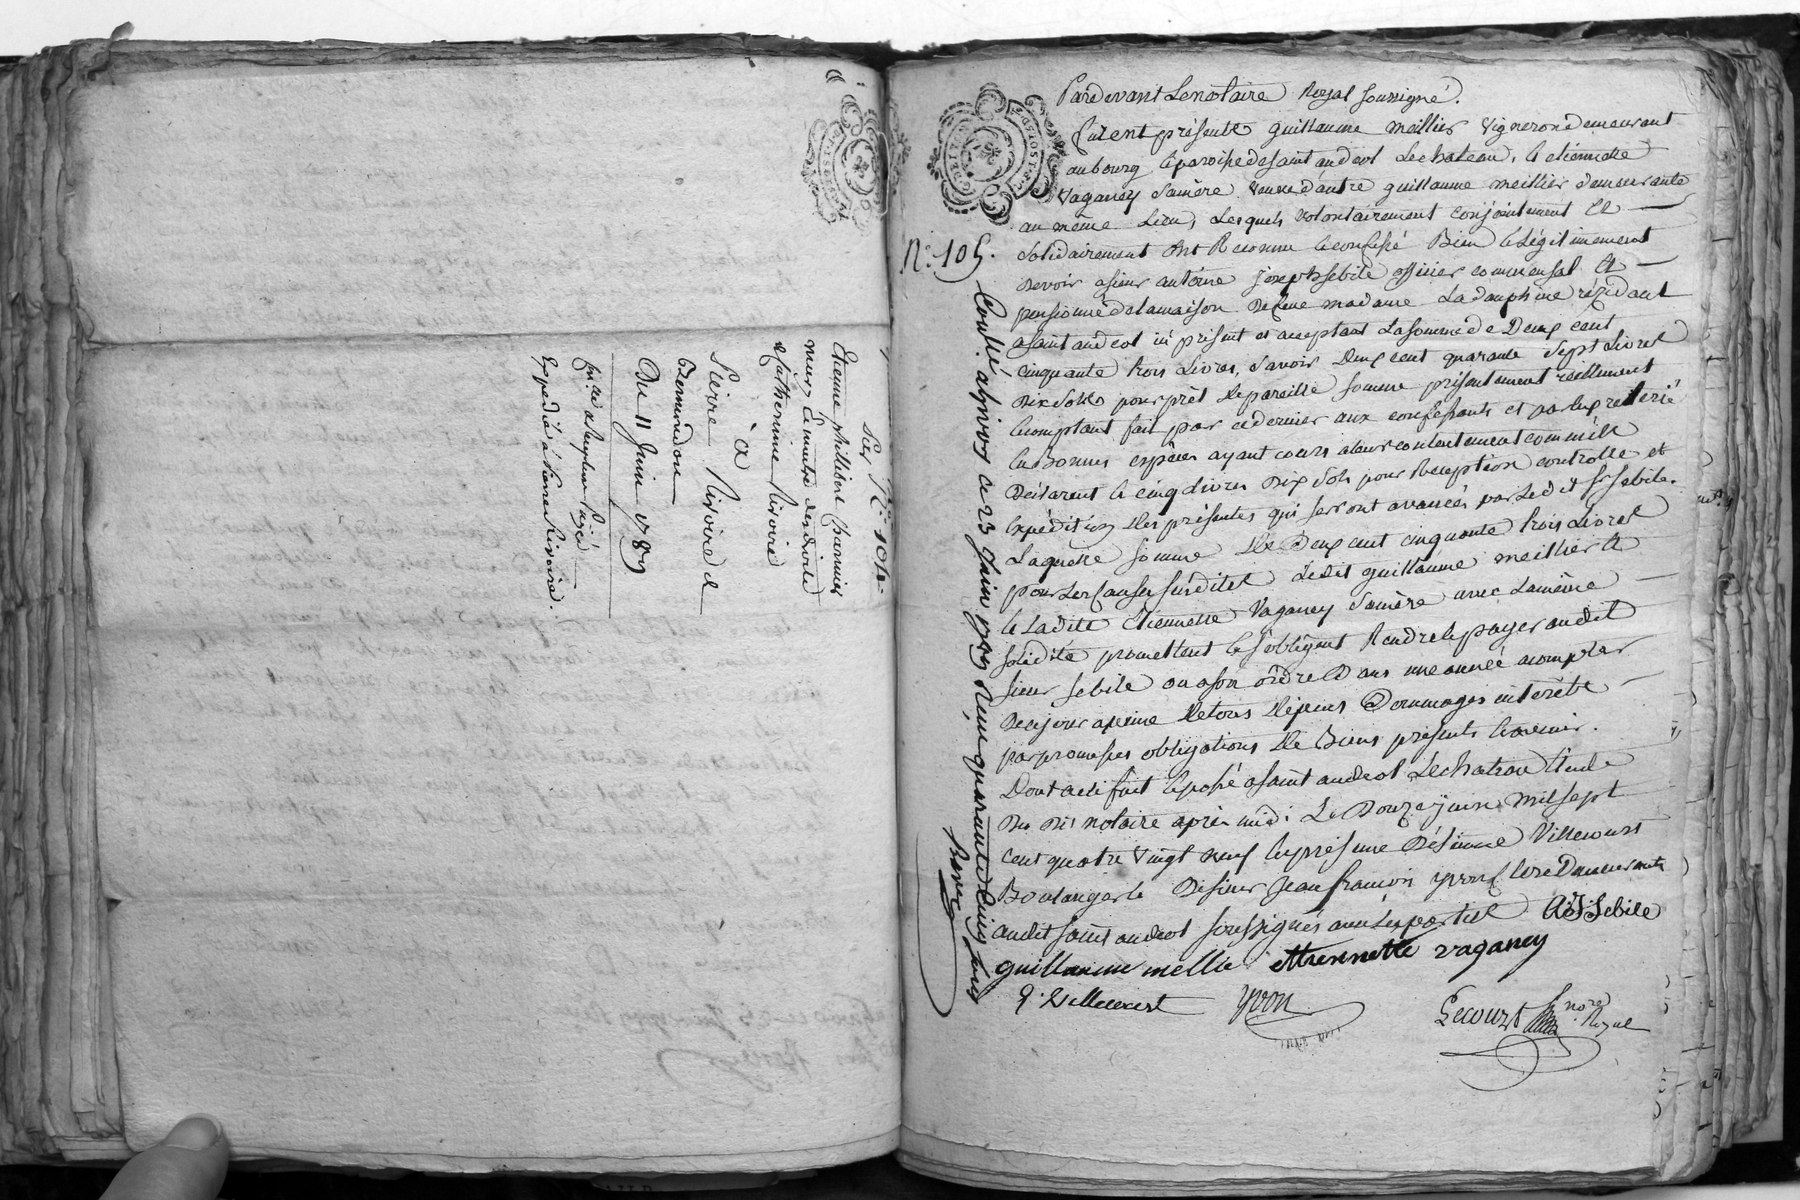 Sur N.º 104.
Etienne philibert charmier
mary & maitre des droits de
Catherinne Rivoire
à
Pierre Rivoire d
Du 11 Juin 1789
Expédié à Pierre Rivoire.
Pardevant Le notaire Royal soussigné.
furent présents guillaume meillier vigneron demeurant
au bourg & paroisse de saint andeol Le chateau, & etiennette
vaganey sa mère veuve d'autre guillaume meillier demeurante
au même Lieu, Lesquels volontairement conjointement et
solidairement ont Reconnu & confessé Bien & légitimement
devoir a sieur antoine Joseph sebile officier commensal et
pensionné de la maison De feue madame La dauphine résidant
a saint andeol ici présent et acceptant La somme de Deux cent
cinquante trois Livres, savoir deux cent quarante sept Livres
Dix sols pour prêt de pareille somme présentement réellement
& comptant fait par ce dernier aux confessants et par eux retiré
en Bonnes espèces ayant cours a leur contentement comme ils
Déclarent & cinq Livres dix sols pour Reception controlle et
expédition des présentes qui seront avancés par Le dit Sr sebile.
Laquelle somme de Deux cent cinquante trois Livres
pour les causes susdites Ledit guillaume meillier et
& La dite etiennette vaganey sa mère avec La même
solidité promettent & s'obligent Rendre & payer au dit
sieur sebile ou a son ordre Dans une année a compter
De ce jour a peine de tous dépens Dommages intérêts
par promesses obligations de Biens présents & avenir.
Dont acte fait & passé a saint andeol Le chateau Etude
Du Dit notaire après midi Le Douze juin mil sept
cent quatre vingt neuf en présence D'étienne Villecourt
Boulanger & De sieur Jean françois yvon clerc Demeurants
au dit saint andeol soussignés avec Les parties A. J. Sebile
guillaume mellie ettiennette vaganey
E. Villecourt yvon Lecourt nore Royal
N.º 105.
Contlé a givors ce 23 Juin 1789 Reçu quarante cinq sols